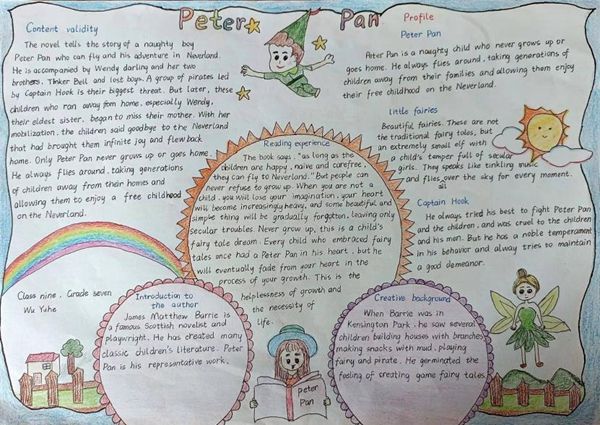 Peter Pan
Content validity
The novel tells the story of a naughty boy
Peter Pan who can fly and his adventure in Neverland.
He is accompanied by Wendy darling and her two
brothers, Tinker Bell and lost boys. A group of pirates led
by Captain Hook is their biggest threat. But later, these
children who ran away from home, especially Wendy,
their eldest sister, began to miss their mother. With her
mobilization, the children said goodbye to the Neverland
that had brought them infinite joy and flew back
home. Only Peter Pan never grows up or goes home.
He always flies around, taking generations
of children away from their homes and
allowing them to enjoy a free childhood
on the Neverland.
Profile
Peter Pan
Peter Pan is a naughty child who never grows up or
goes home. He always flies around, taking generations of
children away from their families and allowing them enjoy
their free childhood on the Neverland.
little fairies
Beautiful fairies. These are not
the traditional fairy tales, but
an extremely small elf with
a child's temper full of secular
girls. They speaks like tinkling music
and flies over the sky for every moment.
all
Captain Hook
He always tried his best to fight Peter Pan
and the children, and was cruel to the children
and his men. But he has a noble temperament
in his behavior and alway tries to maintain
a good demeanor.
Reading experience
The book says, "as long as the
children are happy, naive and carefree,
they can fly to Neverland." But people can
never refuse to grow up. When you are not a
child, you will lose your imagination, your heart
will become increasingly heavy, and some beautiful and
simple thing will be gradually forgotten, leaving only
secular troubles. Never grow up, this is a child's
fairy tale dream. Every child who embraced fairy
tales once had a Peter Pan in his heart, but he
will eventually fade from your heart in the
process of your growth. This is the
helplessness of growth and
the necessity of
life.
Class nine, Grade seven
Wu Yuhe
Introduction to
the author
James Matthew Barrie is
a famous Scottish novelist and
playwright. He has created many
classic children's literature. Peter
Pan is his representative work.
peter
Pan
Creative background
When Barrie was in
Kensington Park, he saw several
children building houses with branches
making snacks with mud, playing
fairy and pirate. He germinated the
feeling of creating game fairy tales